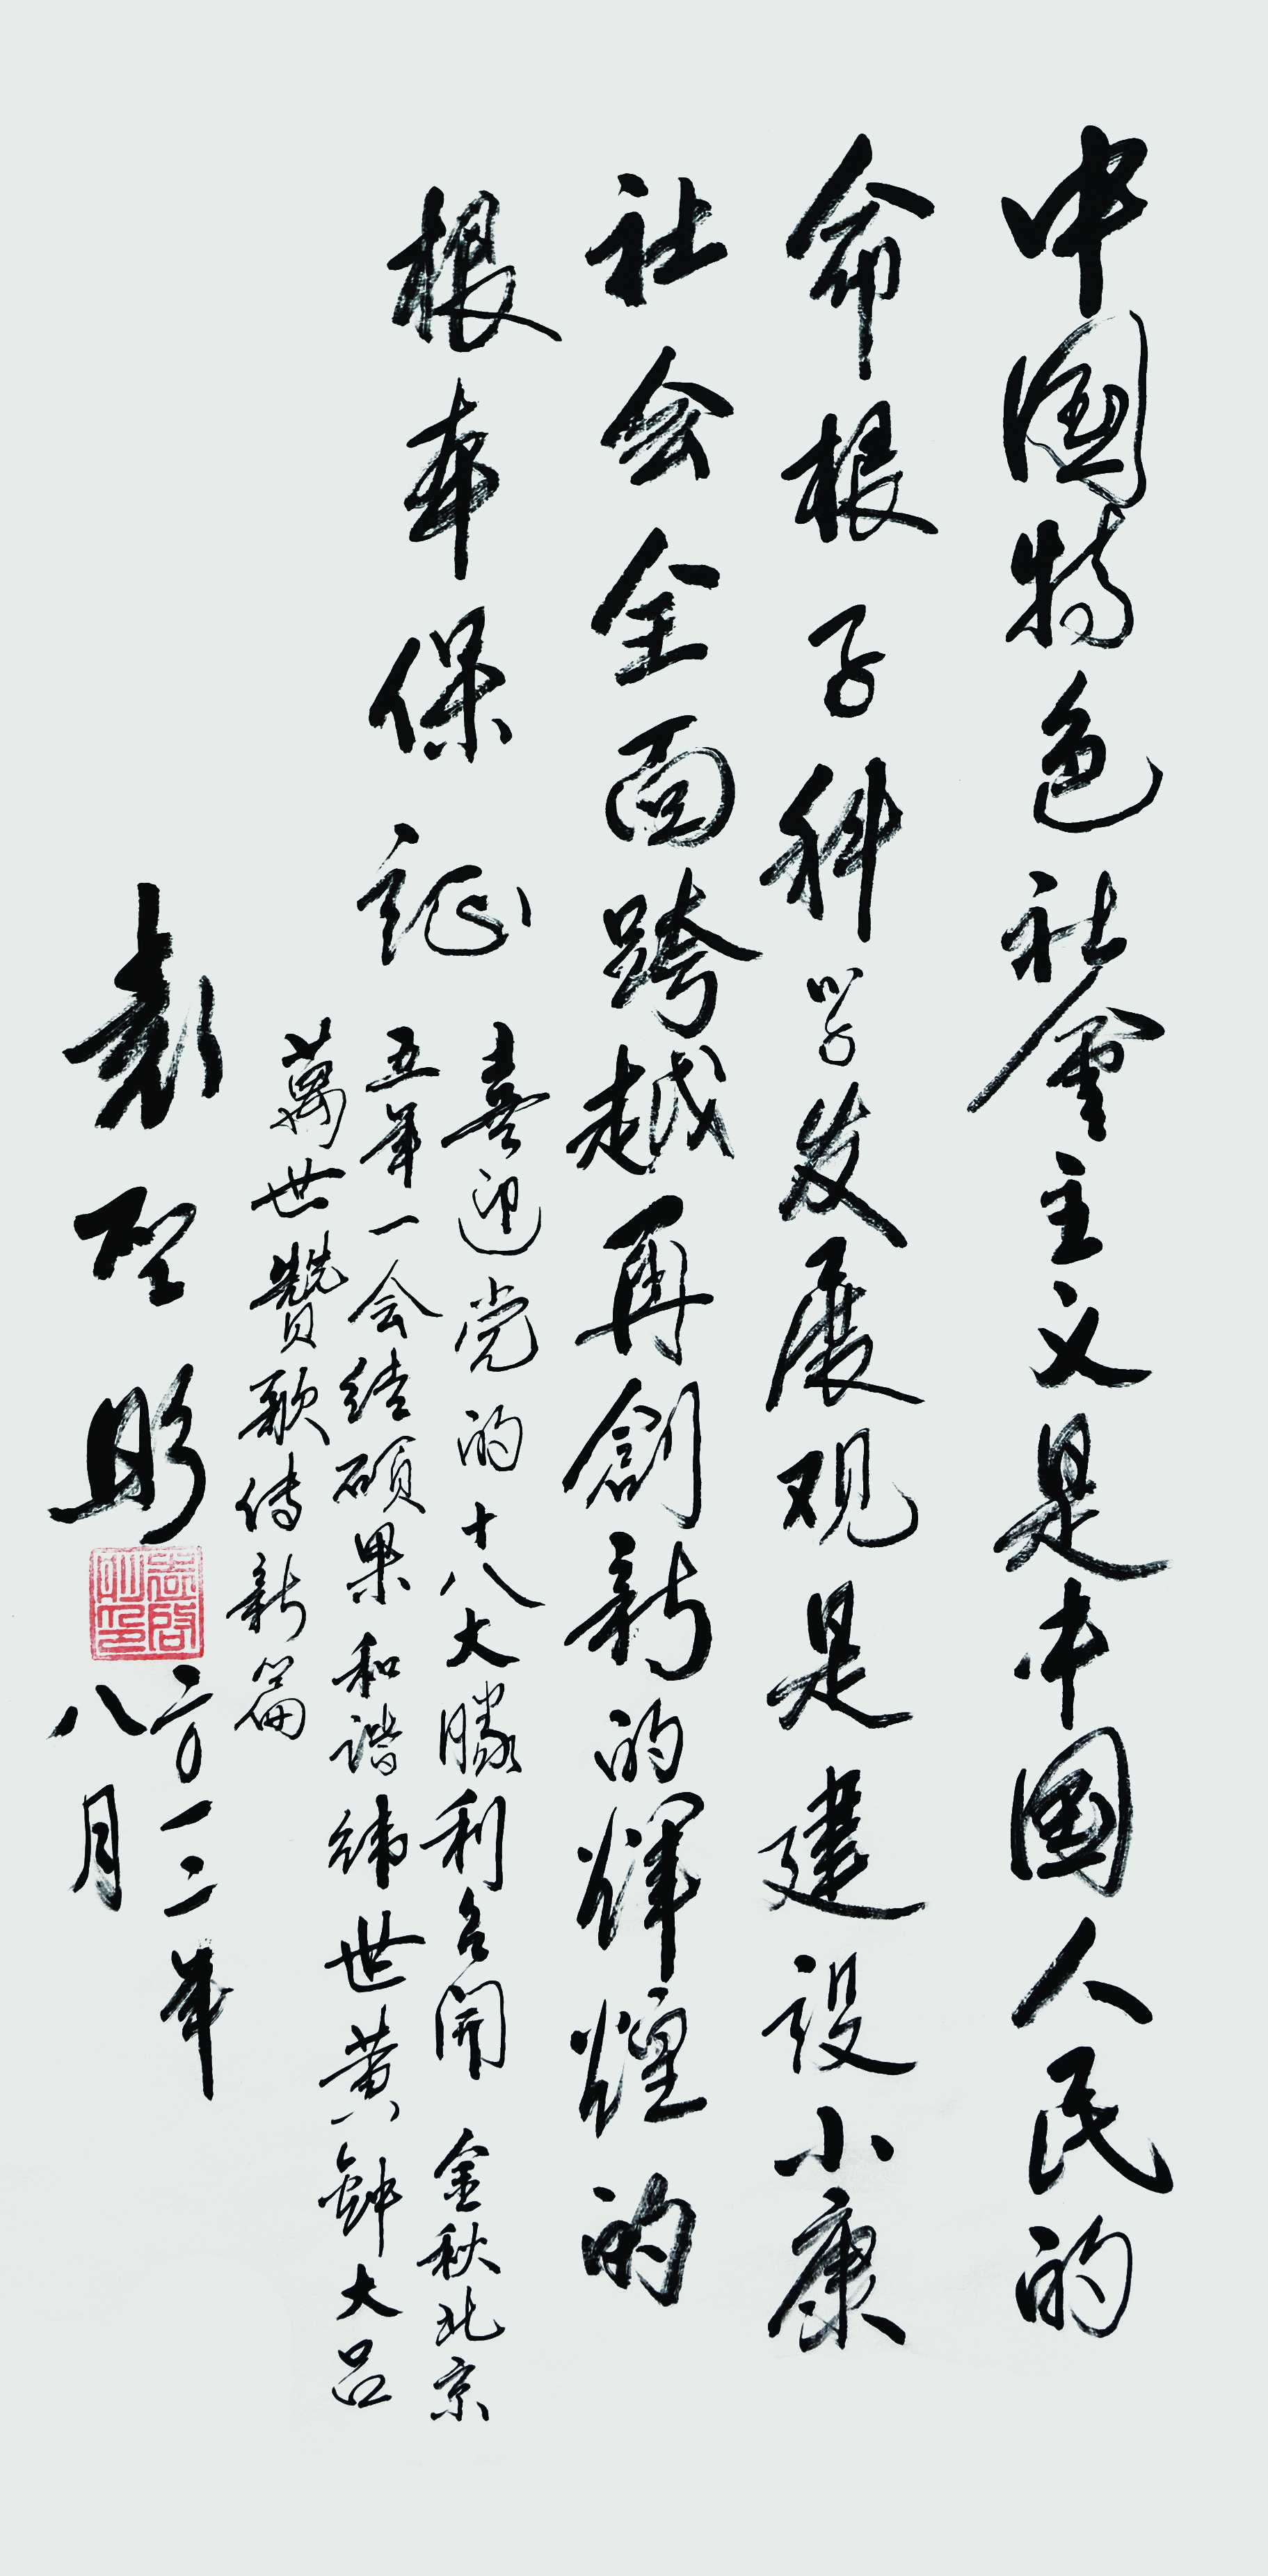 中國特色社會主义是中國人民的
命根子科学发展观是建设小康
社会全面跨越再創新的辉煌的
根本保证
喜迎党的十八大勝利召開 金秋北京
五年一会结硕果和谐纬世黄鈡大吕
萬世贊歌传新篇
二〇一二年
八月